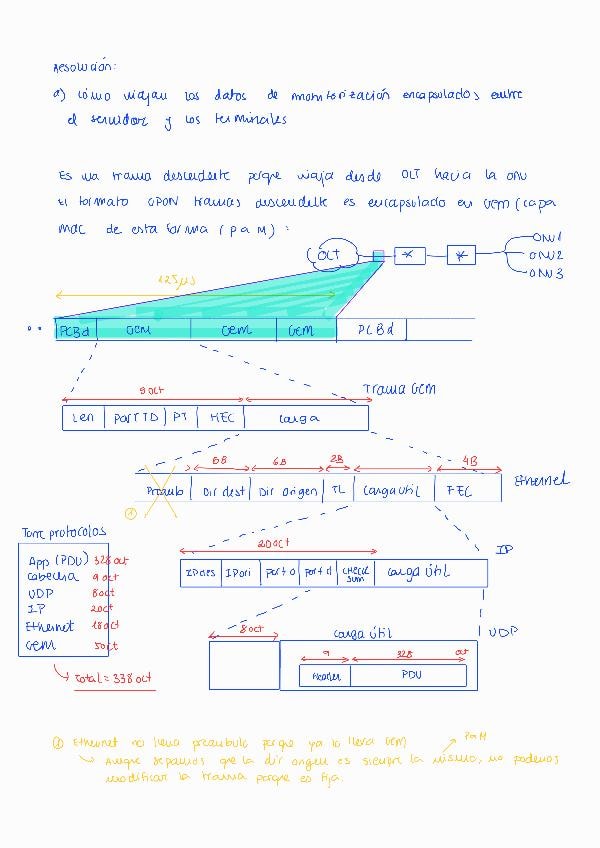 Resolución:
a) Cómo viajan los datos de monitorización encapsulados entre
el servidor y los terminales
Es una trama descendente porque viaja desde OLT hacia la ONU
El formato GPON tramas descendente es encapsulado en GEM (capa
MAC de esta forma (PaM) :
OLT
ONU1
ONU2
ONU3
125 μs
PCBd GEM GEM GEM PCBd
Trama GEM
5 oct
Len Port ID PT HEC Carga
6B 6B 2B 4B
Ethernet
Preamb Dir dest Dir origen TL Carga Útil FEC
①
Torre protocolos
App (PDU) 328 oct
Cabecha 9 oct
UDP 8 oct
IP 20 oct
Ethernet 18 oct
GEM 5 oct
Total = 338 oct
20 oct
IP
IP des IP ori port o port d check sum Carga útil
8 oct
Carga útil
UDP
9 328 oct
Header PDU
① Ethernet no lleva preambulo porque ya lo lleva GEM
PaM
Aunque sepamos que la dir origen es siempre la misma, no podemos
modificar la trama porque es fija.